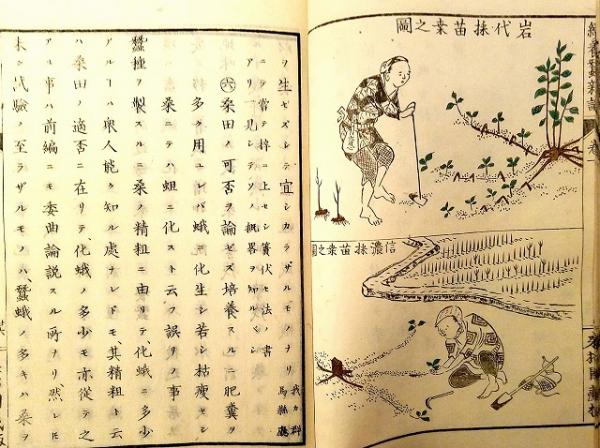 岩代採苗桒之圖
信濃採苗桒之圖
ヲ生ゼズシテ宜シカラザルモノナリ 我カ群
馬縣廳
ニテ嘗テ梓ニ上セシ簀伏セ法ノ書
アリ一見シテソノ概畧ヲ知ルベシ
㊅桑田ノ可否ヲ論ゼズ培養スルニ肥糞ヲ
多ク用ユレバ蛾ニ化生シ若シ枯痩セシ
桒ニテハ蛆ニ化スト云フ誤リノ事
蠶種ヲ製スルニ桑ノ精粗ニ由リテ化蛾ニ多少
アルハ衆人能ク知ル處ナレドモ其精粗ト云
ハ桑田ノ適否ニ在リテ化蛾ノ多少モ亦從テ之
アル事ハ前編ニモ委曲論説スル所ナリ然レ𪜈
未ダ試驗ノ至ラザルモノハ蠶蛾ノ多キハ桑ヲ